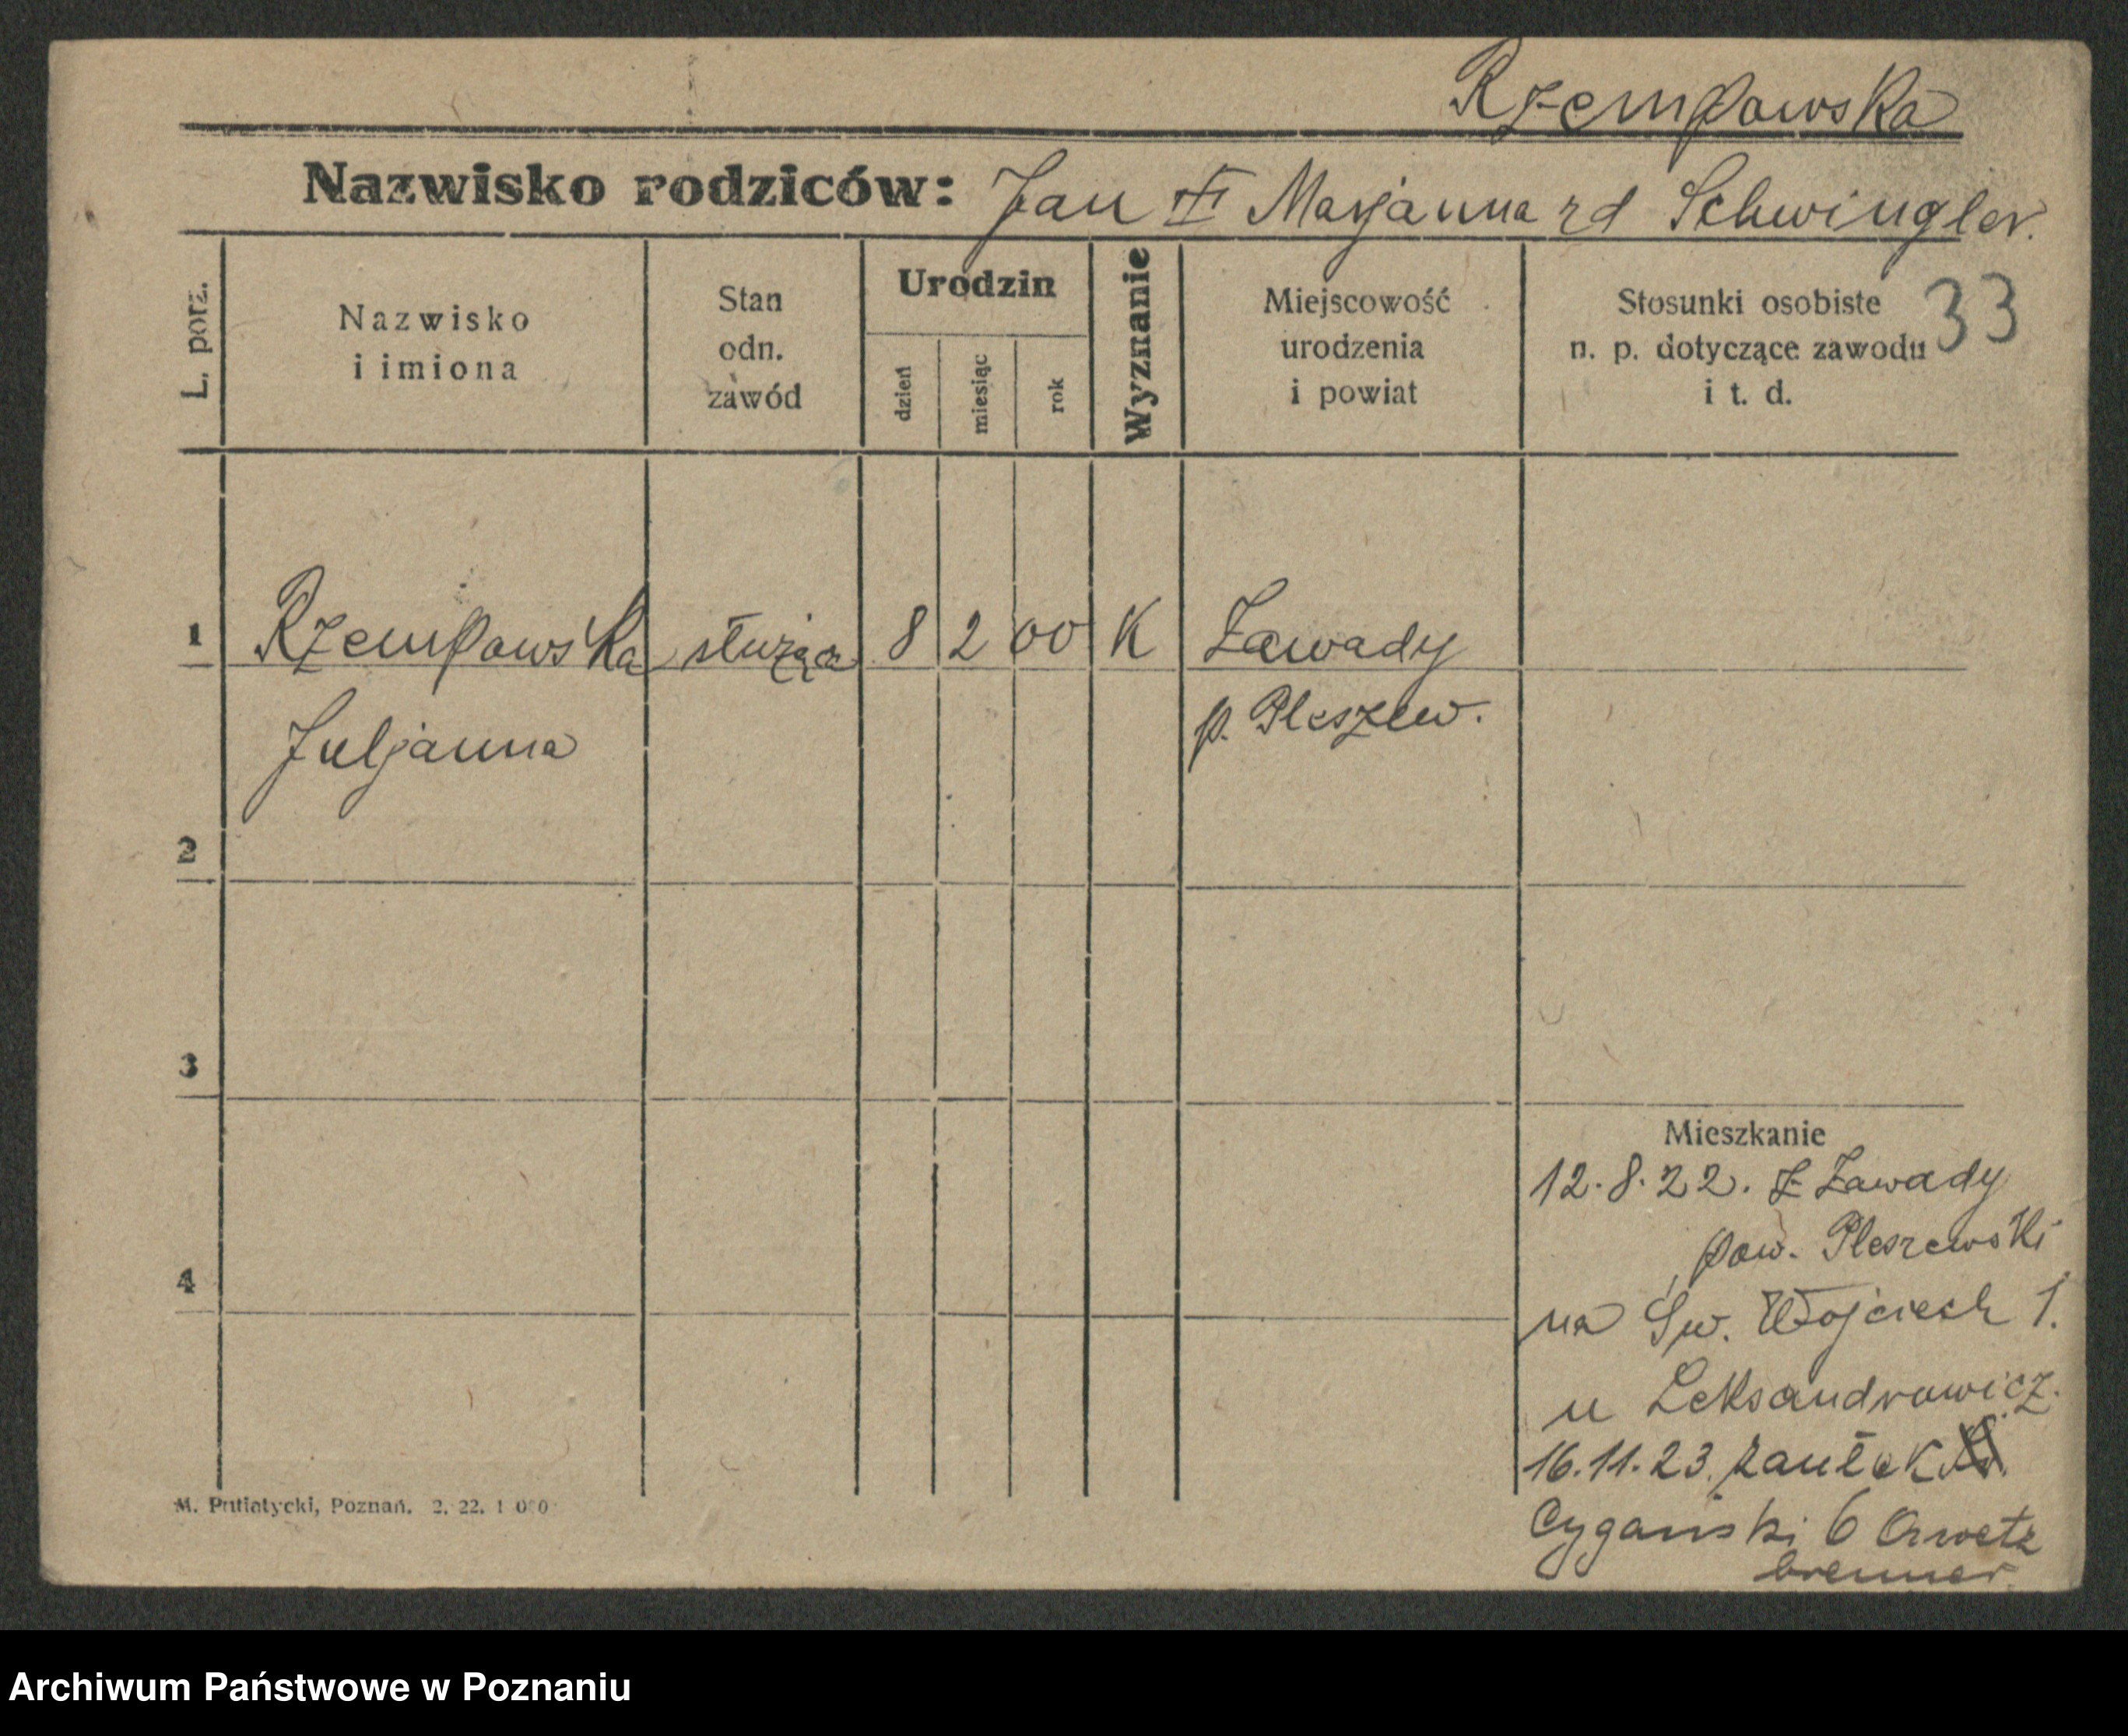 Rzempowska
Nazwisko rodziców: Jan i Marjanna rd Schwingler.
L. porz.
Nazwisko
i imiona
Stan
odn.
zawód
Urodzin
dzień
miesiąc
rok
Wyznanie
Miejscowość
urodzenia
i powiat
Stosunki osobiste
n. p. dotyczące zawodu
i t. d.
33
1 Rzempowska służąca 8 2 00 K Zawady
Juljanna p. Pleszew.
2
3
4
Mieszkanie
12.8.22. z Zawady
pow. Pleszewski
na Św. Wojciech 1.
u Leksandrowicz.
16.11.23. zaułek
Cygański 6
brenner
M. Putiatycki, Poznań. 2. 22. 1 000
Archiwum Państwowe w Poznaniu